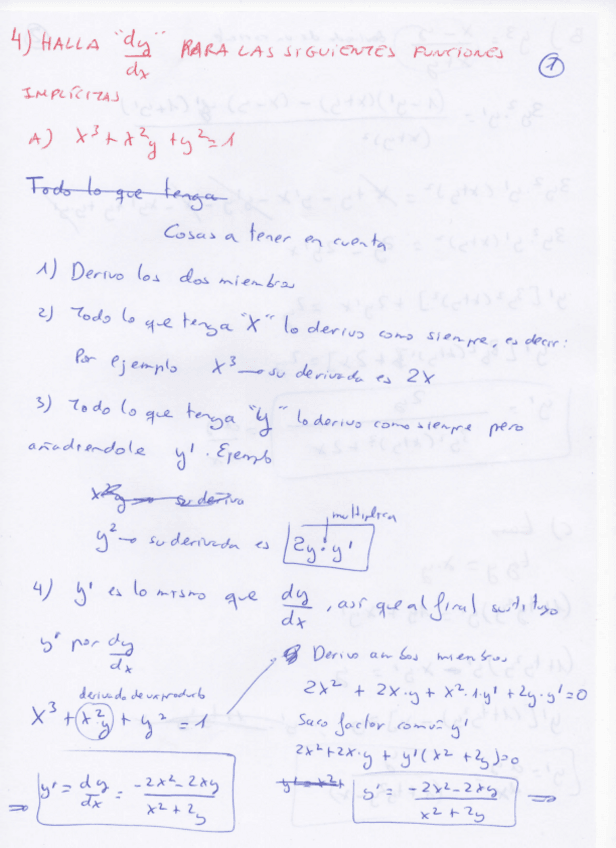 4) HALLA "dy/dx" PARA LAS SIGUIENTES FUNCIONES
①
IMPLÍCITAS
A) x³ + x²y + y² = 1
Todo lo que tenga
Cosas a tener en cuenta
1) Derivo los dos miembros
2) Todo lo que tenga "X" lo derivo como siempre, es decir:
Por ejemplo x³ → su derivada es 2x
3) Todo lo que tenga "y" lo derivo como siempre pero
añadiendole y'. Ejemplo
x²y → su deriva
multiplica
y² → su derivada es 2y · y'
4) y' es lo mismo que dy/dx, así que al final sustituyo
y' por dy/dx
derivada de un producto
x³ + x²y + y² = 1
Derivo ambos miembros
2x² + 2x·y + x²·1·y' + 2y·y' = 0
Saco factor común y'
2x² + 2x·y + y'(x² + 2y) = 0
y' = x²+
y' = (-2x² - 2xy)/(x² + 2y) ⇒
⇒ y' = dy/dx = (-2x² - 2xy)/(x² + 2y)